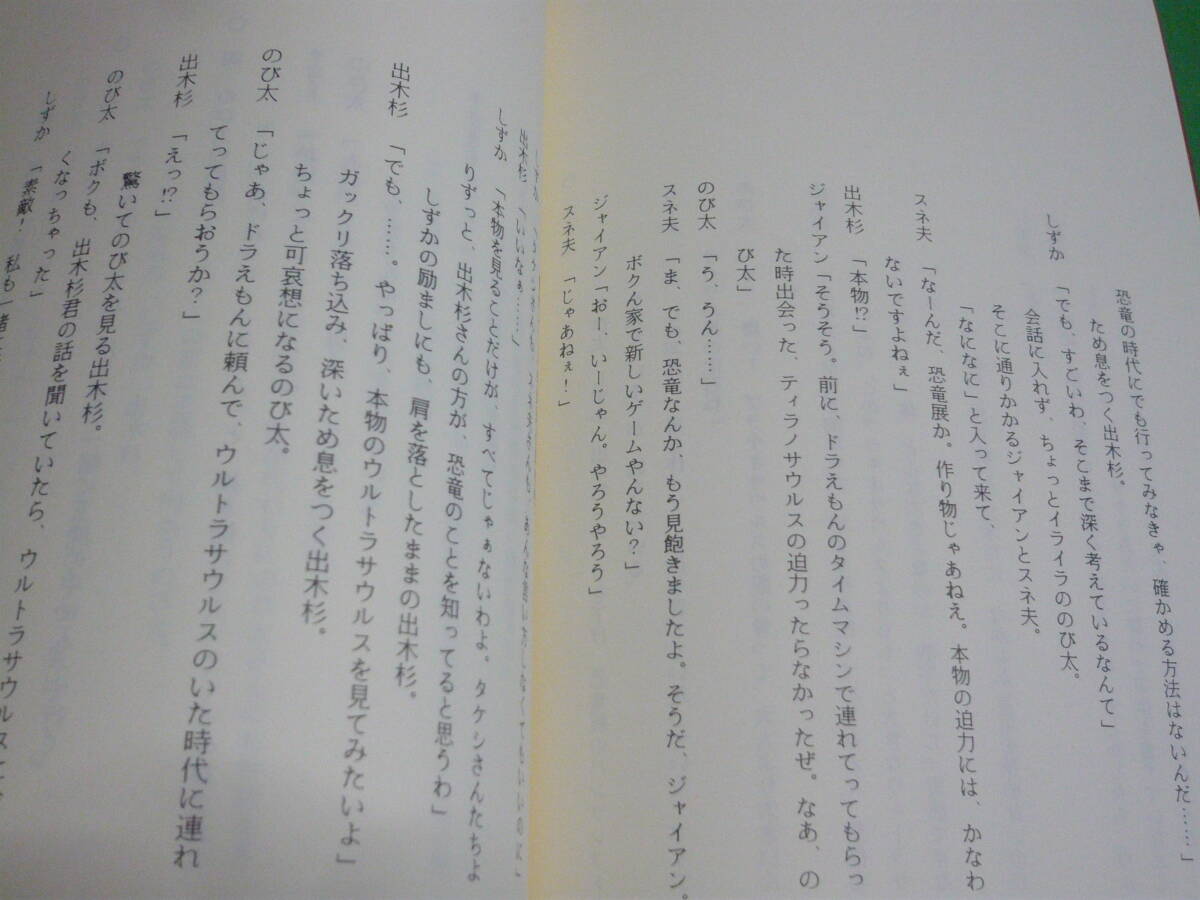 恐竜の時代にでも行ってみなきゃ、確かめる方法はないんだ……」
ため息をつく出木杉。
しずか 「でも、すごいわ、そこまで深く考えているなんて」
会話に入れず、ちょっとイライラののび太。
そこに通りかかるジャイアンとスネ夫。
「なになに」と入って来て、
スネ夫 「なーんだ、恐竜展か。作り物じゃあねえ。本物の迫力には、かなわ
ないですよねぇ」
出木杉 「本物!?」
ジャイアン「そうそう。前に、ドラえもんのタイムマシンで連れてってもらっ
た時出会った、ティラノサウルスの迫力ったらなかったぜ。なあ、の
び太」
のび太 「う、うん……」
スネ夫 「ま、でも、恐竜なんか、もう見飽きましたよ。そうだ、ジャイアン。
ボクん家で新しいゲームやんない?」
ジャイアン「おー、いーじゃん。やろうやろう」
スネ夫 「じゃあねぇ!」
出木杉 「いいなぁ……」
しずか 「本物を見ることだけが、すべてじゃぁないわよ。タケシさんたちよ
りずっと、出木杉さんの方が、恐竜のことを知ってると思うわ」
しずかの励ましにも、肩を落としたままの出木杉。
出木杉 「でも、……。やっぱり、本物のウルトラサウルスを見てみたいよ」
ガックリ落ち込み、深いため息をつく出木杉。
ちょっと可哀想になるのび太。
のび太 「じゃあ、ドラえもんに頼んで、ウルトラサウルスのいた時代に連れ
てってもらおうか?」
出木杉 「えっ!?」
驚いてのび太を見る出木杉。
のび太 「ボクも、出木杉君の話を聞いていたら、ウルトラサウルスに
くなっちゃった」
しずか 「素敵! 私も一緒に